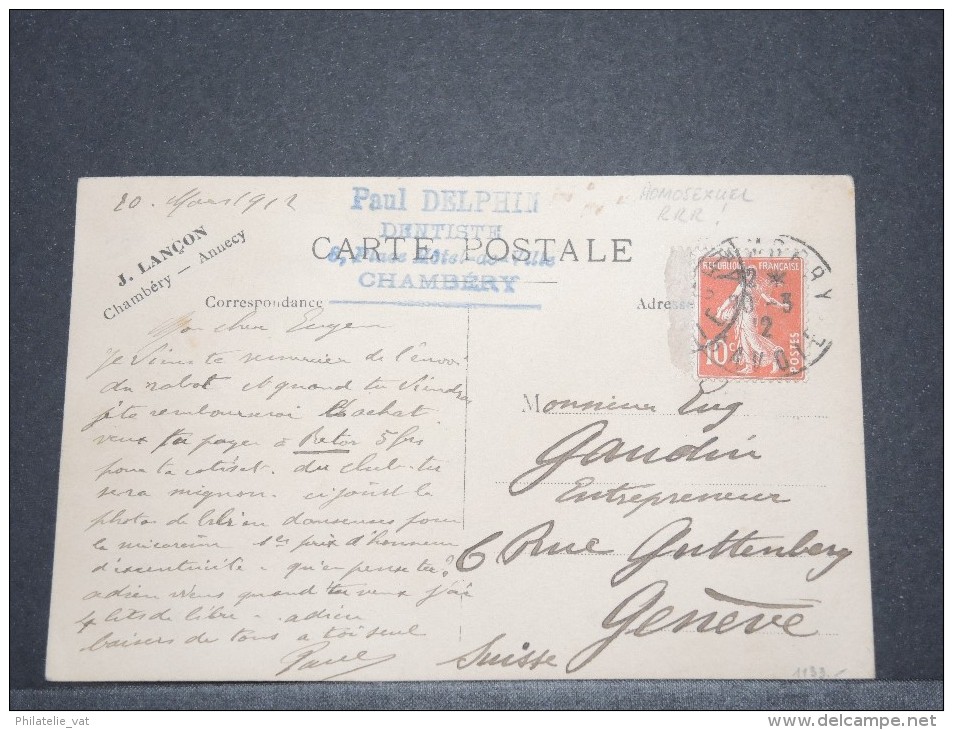 20. Mars 1912
Paul DELPHIN
DENTISTE
8, Place Hôtel-de-Ville
CHAMBÉRY
HOMOSEXUEL
RRR!
J. LANÇON
Chambéry — Annecy
CARTE POSTALE
Correspondance
Adresse
REPUBLIQUE FRANÇAISE
10 c
POSTES
20 - 3
12
Mon cher Eugen
Je viens te remercier de l'envoi
du rabot et quand tu viendras
je te rembourserai l'achat
veux tu payer à Retor 5 frs
pour ta cotisat. du club. tu
sera mignon. ci joint la
photo de danseuses pour
la 1er prix d'honneur
d'excentricité - qu'en pense tu?
adieu viens quand tu veux j'ai
4 lits de libre - adieu
baisers de tous a toi seul
Paul
Monsieur Eug
Gaudin
Entrepreneur
6 Rue Guttenberg
Genève
Suisse
1133.-
Philatelie_vat
www.delcampe.net